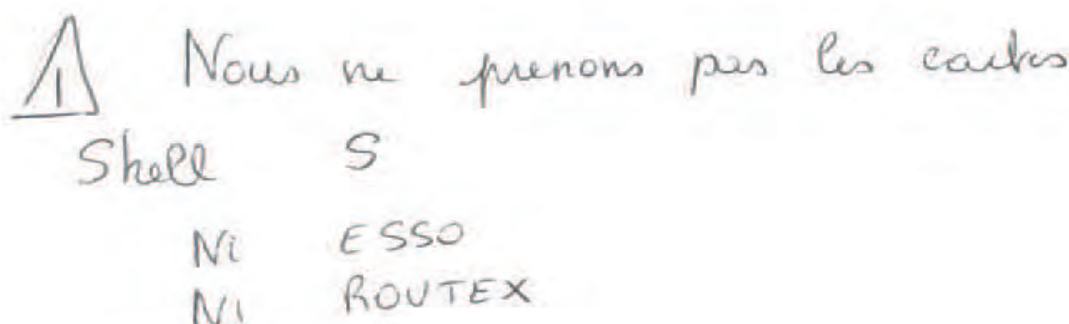 ⚠ Nous ne prenons pas les cartes
Shell S
Ni ESSO
Ni ROUTEX